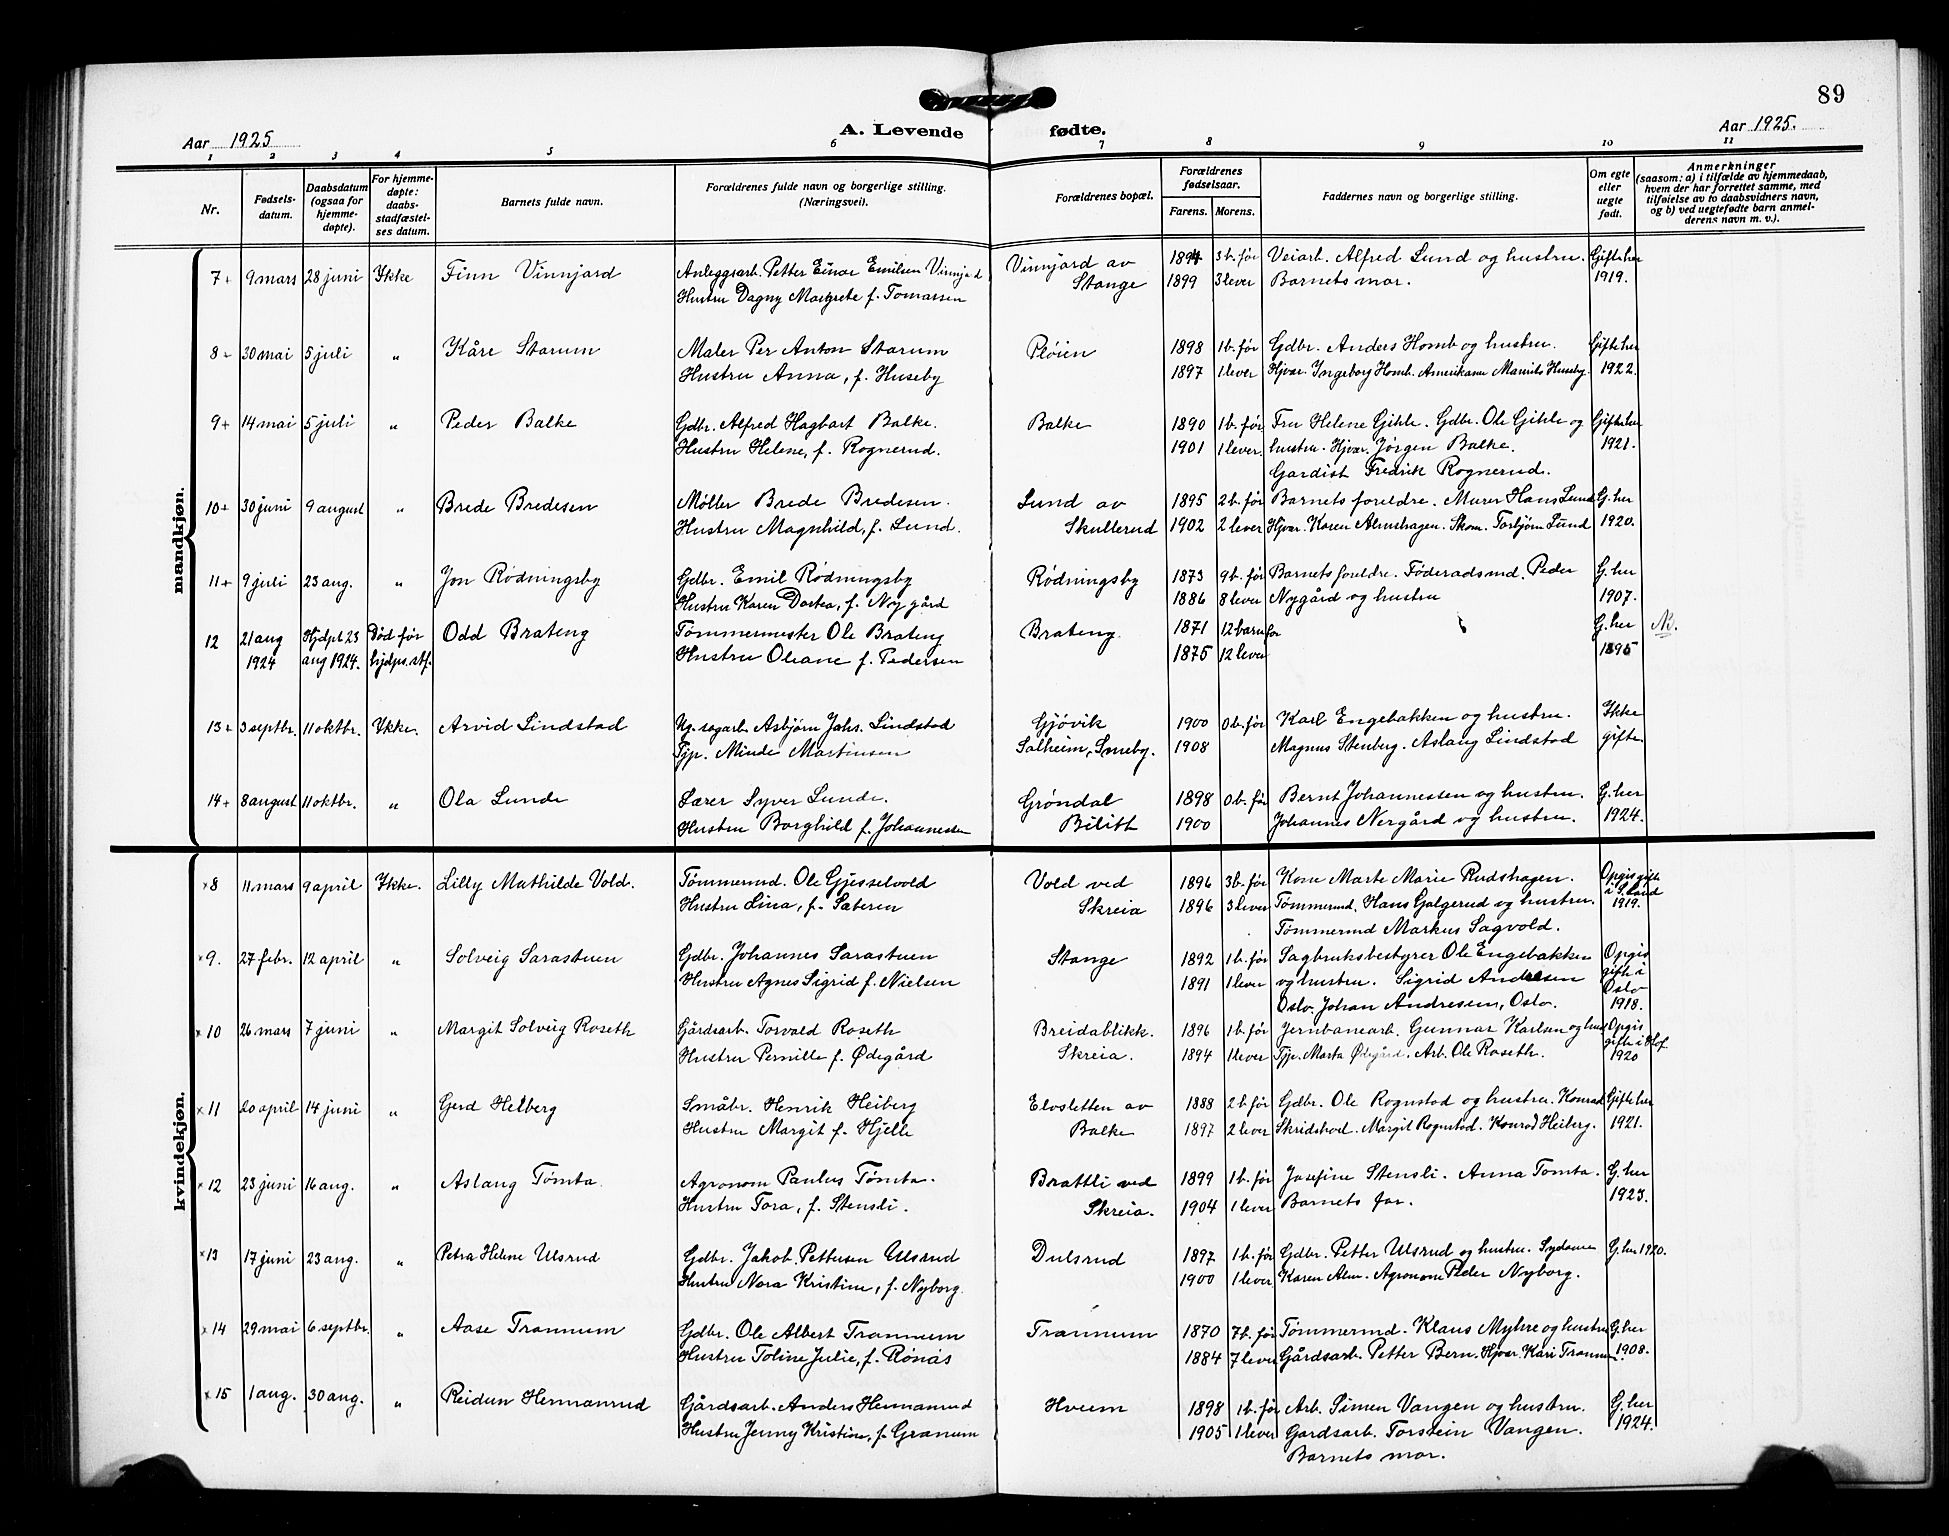 89
Aar 1925
A. Levende fødte.
Aar 1925.
1 2 3 4 5 6 7 8 9 10 11
Nr.
Fødsels-
datum.
Daabsdatum
(ogsaa for
hjemme-
døpte).
For hjemme-
døpte:
daabs-
stadfæstel-
ses datum.
Barnets fulde navn.
Forældrenes fulde navn og borgerlige stilling.
(Næringsvei).
Forældrenes bopæl.
Forældrenes
fødselsaar.
Farens. Morens.
Faddernes navn og borgerlige stilling.
Om egte
eller
uegte
født.
Anmerkninger
(saasom: a) i tilfælde av hjemmedaab,
hvem der har forrettet samme, med
tilføielse av to daabsvidners navn,
og b) ved uegtefødte barn anmel-
derens navn m. v.).
mandkjøn.
7 + 9 mars 28 juni Ikke Finn Vinnjard Anleggsarb. Petter Einar Emilsen Vinnjard Vinnjard av 1894 3 b. før Veiarb. Alfred Lund og hustru. Gifte her
Hustru Dagny Margrete f. Tomassen Stange 1899 3 lever Barnets mor. 1919.
8 - 30 mai 5 juli " Kåre Starum Maler Per Anton Starum Pløien 1898 1 b. før Gdbr. Anders Homb og hustru. Gifte her
Hustru Anna, f. Huseby 1897 1 lever Hjvær. Ingeborg Homb. Amerikaner Maurits Huseby. 1922.
9 + 14 mai 5 juli " Peder Balke Gdbr. Alfred Hagbart Balke. Balke 1890 1 b. før Fru Helene Gihle. Gdbr. Ole Gihle og Gifte her
Hustru Helene, f. Rognerud. 1901 1 lever. hustru. Hjvær. Jørgen Balke. 1921.
Gardist Fredrik Rognerud.
10 + 30 juni 9 august " Brede Bredesen Møller Brede Bredesen. Lund av 1895 2 b. før Barnets foreldre. Murer Hans Lund G. her
Hustru Magnhild, f. Lund. Skullerud 1902 2 lever Hjvær. Karen Almshagen. Skom. Torbjørn Lund 1920.
11 + 9 juli 23 aug. " Jon Rødningsby Gdbr. Emil Rødningsby Rødningsby 1873 9 b. før Barnets foreldre. Føderådsmd. Peder G. her
Hustru Karen Dortea, f. Nygård 1886 8 lever Nygård og hustru 1907.
12 21 aug Hjdpt 23 Død før Odd Brateng Tømmermester Ole Brateng Brateng. 1871 12 barn før G. her NB.
1924 aug 1924. hjdps. stf. Hustru Oliane f. Pedersen 1875 12 lever 1895
13 + 3 septbr. 11 oktbr. Ikke. Arvid Lindstad Ug. sagarb. Asbjørn Johs. Lindstad Gjøvik 1900 0 b. før Karl Engebakken og hustru. Ikke
Tjp. Minda Martinsen Solheim, Smeby. 1908 Magnus Stenberg. Aslaug Lindstad gifte.
14 + 8 august 11 oktbr. " Ola Lunde Lærer Syver Lunde. Grøndal 1898 0 b. før Bernt Johannessen og hustru. G. her
Hustru Borghild f. Johannessen Bilitt 1900 Johannes Nergård og hustru. 1924.
kvindekjøn.
× 8 11 mars 9 april Ikke. Lilly Mathilde Vold. Tømmermd. Ole Gjesselvold Vold ved 1896 3 b. før Kone Marte Marie Rudshagen. Opgis gifte
Hustru Lina, f. Sæteren Skreia 1896 3 lever Tømmermd. Hans Galgerud og hustru. i S. Land 1919.
Tømmermd Markus Sagvold.
× 9. 27 febr. 12 april " Solveig Sarastuen Gdbr. Johannes Sarastuen Stange 1892 1 b. før Sagbruksbestyrer Ole Engebakken Opgis
Hustru Agnes Sigrid f. Nielsen 1891 1 lever og hustru. Sigrid Andresen gifte i
Oslo. Johan Andresen, Oslo. Oslo 1918.
× 10 26 mars 7 juni " Margit Solveig Roseth Gårdsarb. Torvald Roseth Breidablikk. 1896 1 b. før Jernbanearb. Gunnar Karlsen og hustru Opgis
Hustru Pernille f. Ødegård Skreia. 1894 1 lever Tjp. Marta Ødegård. Arb. Ole Roseth. gifte i Hof 1920
× 11 20 april 14 juni " Gerd Heiberg Småbr. Henrik Heiberg Elvsletten av 1888 2 b. før Gdbr. Ole Rognstad og hustru. Konrad Gifte her
Hustru Margit f. Hjelle Balke 1897 2 lever Skridshoel. Margit Rognstad. Konrad Heiberg. 1921.
× 12 23 juni 16 aug. " Aslaug Tømta Agronom Paulus Tømta. Brattli ved 1899 1 b. før Josefine Stensli. Anna Tømta. G. her
Hustru Tora, f. Stensli. Skreia. 1904 1 lever Barnets far. 1923.
× 13 17 juni 23 aug. " Petra Helene Ulsrud Gdbr. Jakob Pettersen Ulsrud Dulsrud 1897 1 b. før Gdbr. Petter Ulsrud og hustru. Sydame G. her 1920.
Hustru Nora Kristine, f. Nyborg. 1900 1 lever Karen Alm. Agronom Peder Nyborg.
× 14 29 mai 6 septbr. " Aase Trannum Gdbr. Ole Albert Trannum Trannum 1870 7 b. før Tømmermd. Klaus Myhre og hustru G. her
Hustru Toline Julie, f. Rönås 1884 7 lever Gårdsarb. Petter Bern. Hjvær. Kari Trannum. 1908.
× 15 1 aug. 30 aug. " Reidun Hermanrud Gårdsarb. Anders Hermanrud Hveem 1898 1 b. før Arb. Simen Vangen og hustru. G. her
Hustru Jenny Kristine, f. Granum 1905 1 lever Gardsarb. Torstein Vangen. 1924.
Barnets mor.